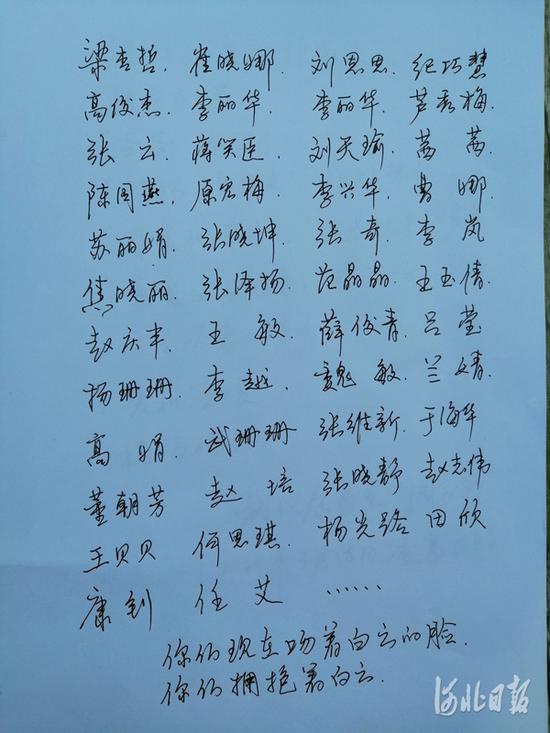 梁杏哲. 崔晓娜. 刘思思. 纪巧慧
高俊杰. 李丽华. 李丽华. 芦秀梅.
张云. 蒋笑臣. 刘天瑜. 茜茜.
陈国燕. 原宏梅. 李兴华. 曹娜.
苏丽娟. 张晓坤. 张奇. 李岚
焦晓丽. 张泽扬. 范晶晶. 王玉倩.
赵庆丰. 王敏. 薛俊青. 吕莹
杨珊珊. 李越. 魏敏. 兰婧.
高娟. 武珊珊. 张维新. 于海华
董朝芳 赵培 张晓静 赵志伟
王贝贝 何思琪. 杨光路 田欣
康钊 任艾 ……
你们现在吻着白云的脸.
你们拥抱着白云.
河北日报